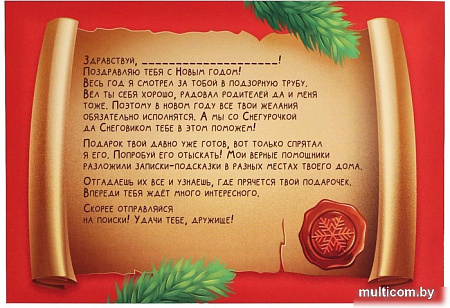 Здравствуй, ____________________!
Поздравляю тебя с Новым годом!
Весь год я смотрел за тобой в подзорную трубу.
Вёл ты себя хорошо, радовал родителей да и меня
тоже. Поэтому в новом году все твои желания
обязательно исполнятся. А мы со Снегурочкой
да Снеговиком тебе в этом поможем!
Подарок твой давно уже готов, вот только спрятал
я его. Попробуй его отыскать! Мои верные помощники
разложили записки-подсказки в разных местах твоего дома.
Отгадаешь их все и узнаешь, где прячется твой подарочек.
Впереди тебя ждёт много интересного.
Скорее отправляйся
на поиски! Удачи тебе, дружище!
multicom.by